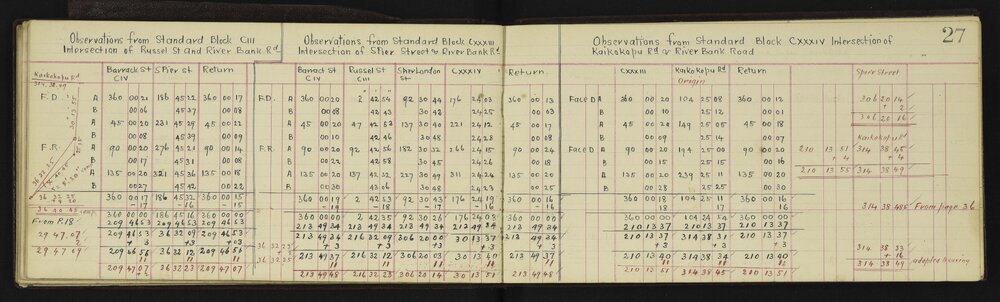 Observations from Standard Block CIII
Intersection of Russel St and River Bank Rd
Kaikokopu Rd
314.38.49
Barrack St Spier St Return
CIV
F.D. A 360 00 20 186 45 22 360 00 17
B 00 06 45 37 00 08
A 45 00 20 231 45 39 45 00 12
B 00 08 45 39 00 09
F.R. A 90 00 20 276 45 21 90 00 14
B 00 17 45 31 00 08
A 135 00 20 321 45 36 135 00 15
B 00 27 45 42 00 22
360 00 17 186 45 32 360 00 15
-17 -16 -15
360 00 00 186 45 16 360 00 00
From P.18 209 46 53 209 46 53 209 46 53
29 47 07 209 46 53 36 32 09 209 46 53
2 + 3 + 3 + 03
29 47 09 209 46 56 36 32 12 209 46 56
11 11 11
209 47 07 36 32 23 209 47 07
Observations from Standard Block CXXXIII
Intersection of Spier Street & River Bank Rd
Barrack St Russel St CXXXIV Return
CIV CIII
F.D. A 360 00 20 2 42 54 92 30 44 176 24 03 360 00 13
B 00 08 42 43 30 48 24 25 00 03
A 45 00 20 47 42 63 137 30 40 221 24 12 45 00 17
B 00 10 42 46 30 48 24 28 00 08
F.R. A 90 00 20 92 42 56 182 30 32 266 24 15 90 00 24
B 00 22 42 58 30 45 24 26 00 18
A 135 00 20 137 42 32 227 30 49 311 24 24 135 00 20
B 00 30 43 06 30 48 24 23 00 25
360 00 19 2 42 53 92 30 43 176 24 19 360 00 16
-19 -18 -17 -16 -16
360 00 00 2 42 35 92 30 26 176 24 03 360 00 00
213 49 34 213 49 34 213 49 34 213 49 34 213 49 34
36 32 23 + 3 + 3 + 3 + 3
36 32 25 213 49 37 216 32 12 306 20 03 30 13 40 213 49 37
11 11 11 11 11
213 49 48 216 32 23 306 20 14 30 13 51 213 49 48
Observations from Standard Block CXXXIV Intersection of
Kaikokopu Rd & River Bank Road
27
CXXXIII Kaikokopu Rd Return
Origin
Face D A 360 00 20 104 25 08 360 00 12
B 00 10 25 12 00 01
A 45 00 20 149 25 05 45 00 18
B 00 09 25 14 00 07
Face D A 90 00 20 194 25 00 90 00 20
B 00 15 25 15 00 16
A 135 00 20 239 25 11 135 00 20
B 00 28 25 25 00 30
360 00 18 104 25 11 360 00 16
18 17 16
360 00 00 104 24 54 360 00 00
210 13 37 210 13 37 210 13 37
210 13 37 314 38 31 210 13 37
+ 3 + 3 + 3
210 13 40 314 38 34 210 13 40
11 11 11
210 13 51 314 38 45 210 13 51
Spier Street
306 20 14
+ 2
306 20 16
Kaikokopu Rd
210 13 51 314 38 45
+ 4 + 4
210 13 55 314 38 49
314 38 485 From page 36
314 38 33
+ 16
314 38 49 adopted bearing